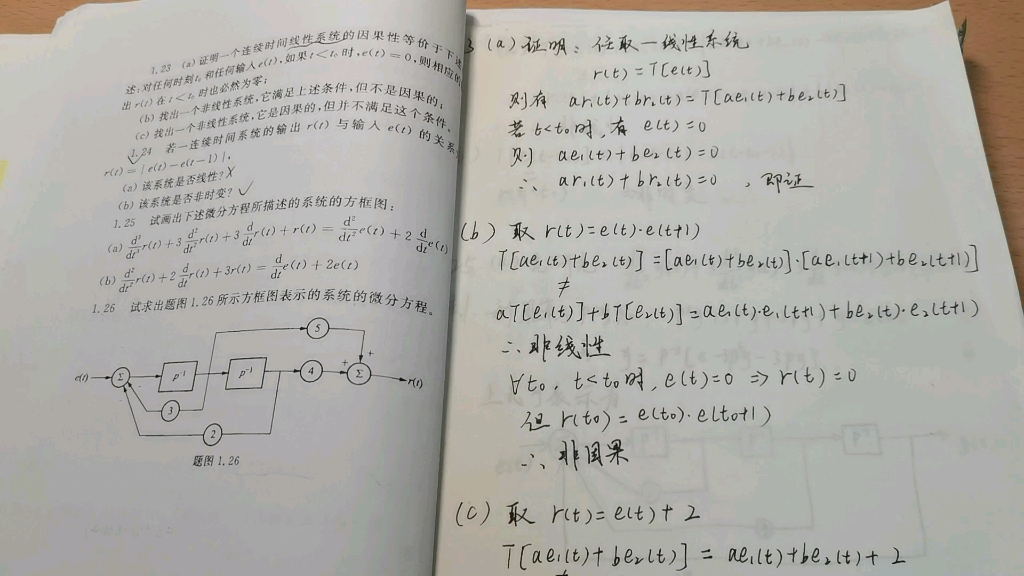 1.23 (a) 证明一个连续时间线性系统的因果性等价于下
述:对任何时刻t₀和任何输入e(t),如果t<t₀时,e(t)=0,则相应的
出r(t)在t<t₀时也必然为零;
(b) 找出一个非线性系统,它满足上述条件,但不是因果的;
(c) 找出一个非线性系统,它是因果的,但并不满足这个条件。
1.24 若一连续时间系统的输出r(t)与输入e(t)的关系
r(t)=|e(t)-e(t-1)|,
(a) 该系统是否线性? X
(b) 该系统是否非时变? ✓
1.25 试画出下述微分方程所描述的系统的方框图:
(a) d³/dt³ r(t)+3 d²/dt² r(t)+3 d/dt r(t)+r(t)= d²/dt² e(t)+2 d/dt e(t)
(b) d²/dt² r(t)+2 d/dt r(t)+3r(t)= d/dt e(t)+2e(t)
1.26 试求出题图1.26所示方框图表示的系统的微分方程。
5
e(t) Σ p⁻¹ p⁻¹ 4 + Σ + r(t)
3
2
题图1.26
3 (a) 证明: 任取一线性系统
r(t)=T[e(t)]
则有 ar₁(t)+br₂(t)=T[ae₁(t)+be₂(t)]
若t<t₀时,有 e(t)=0
则 ae₁(t)+be₂(t)=0
∴ ar₁(t)+br₂(t)=0 , 即证
(b) 取 r(t)=e(t)·e(t+1)
T[ae₁(t)+be₂(t)]=[ae₁(t)+be₂(t)]·[ae₁(t+1)+be₂(t+1)]
≠
aT[e₁(t)]+bT[e₂(t)]=ae₁(t)·e₁(t+1)+be₂(t)·e₂(t+1)
∴ 非线性
∀t₀, t<t₀时,e(t)=0 ⇒ r(t)=0
但 r(t₀)=e(t₀)·e(t₀+1)
∴ 非因果
(c) 取 r(t)=e(t)+2
T[ae₁(t)+be₂(t)] = ae₁(t)+be₂(t)+2
≠